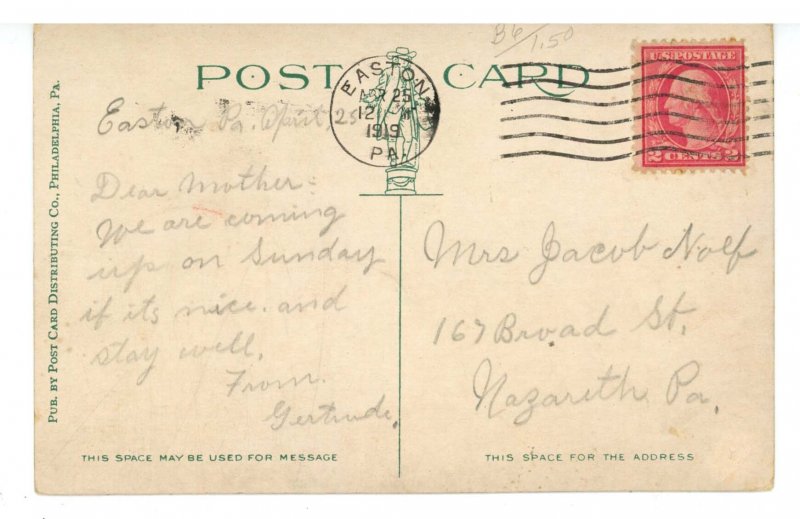 B6/1.50
POST CARD
U.S. POSTAGE
2 CENTS 2
EASTON
APR 25
12 M
1919
PA.
Easton Pa. April, 25
Dear Mother-
We are coming
up on Sunday
if its nice. and
stay well.
From.
Gertrude.
Mrs Jacob Nolf
167 Broad St.
Nazareth Pa.
THIS SPACE MAY BE USED FOR MESSAGE
THIS SPACE FOR THE ADDRESS
PUB. BY POST CARD DISTRIBUTING CO., PHILADELPHIA, PA.